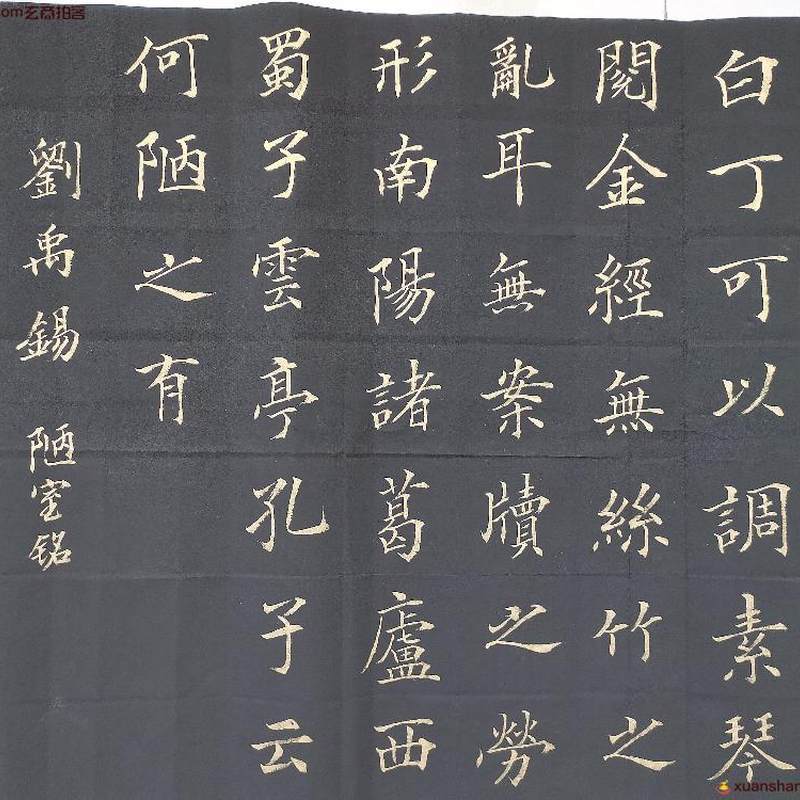 白丁可以調素琴
閱金經無絲竹之
亂耳無案牘之勞
形南陽諸葛廬西
蜀子雲亭孔子云
何陋之有
劉禹錫 陋室銘
om玄商拍客
xuanshan